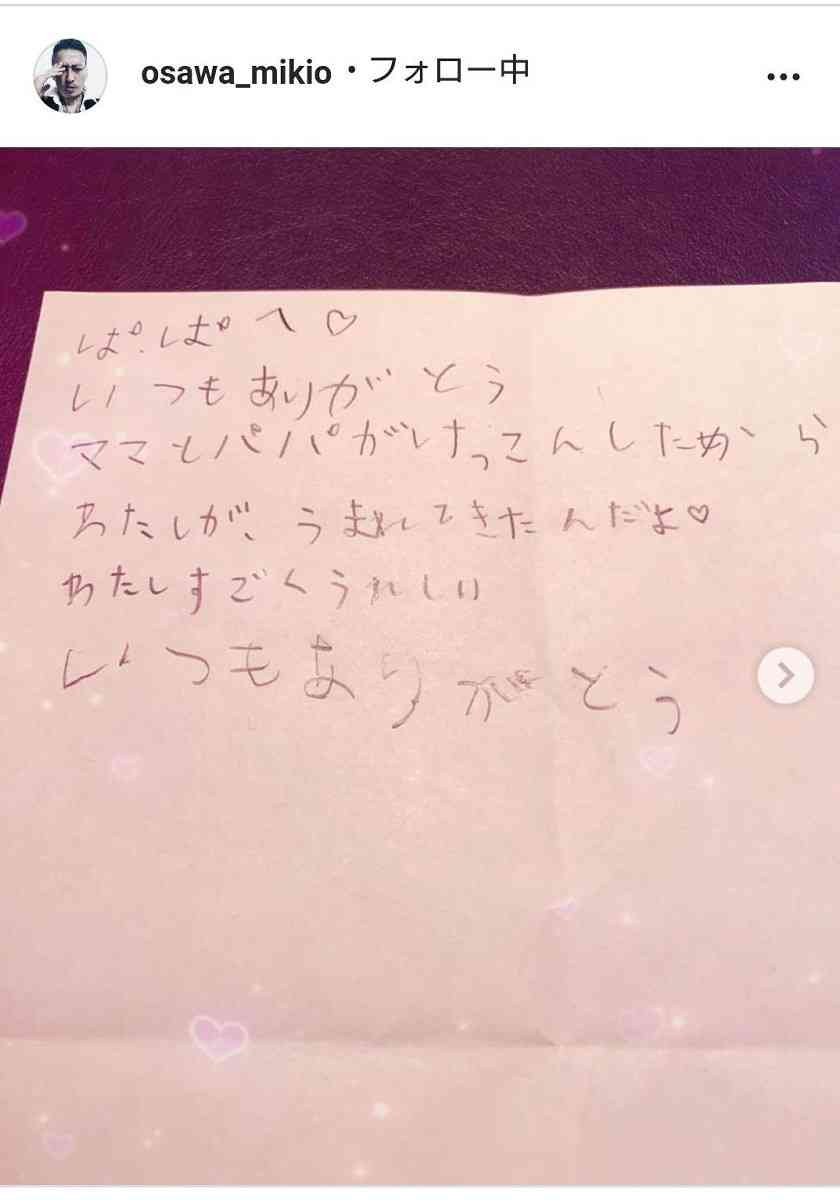 osawa_mikio・フォロー中
ぱぱへ♡
いつもありがとう
ママとパパがけっこんしたから
わたしが、うまれてきたんだよ♡
わたしすごくうれしい
いつもありがとう